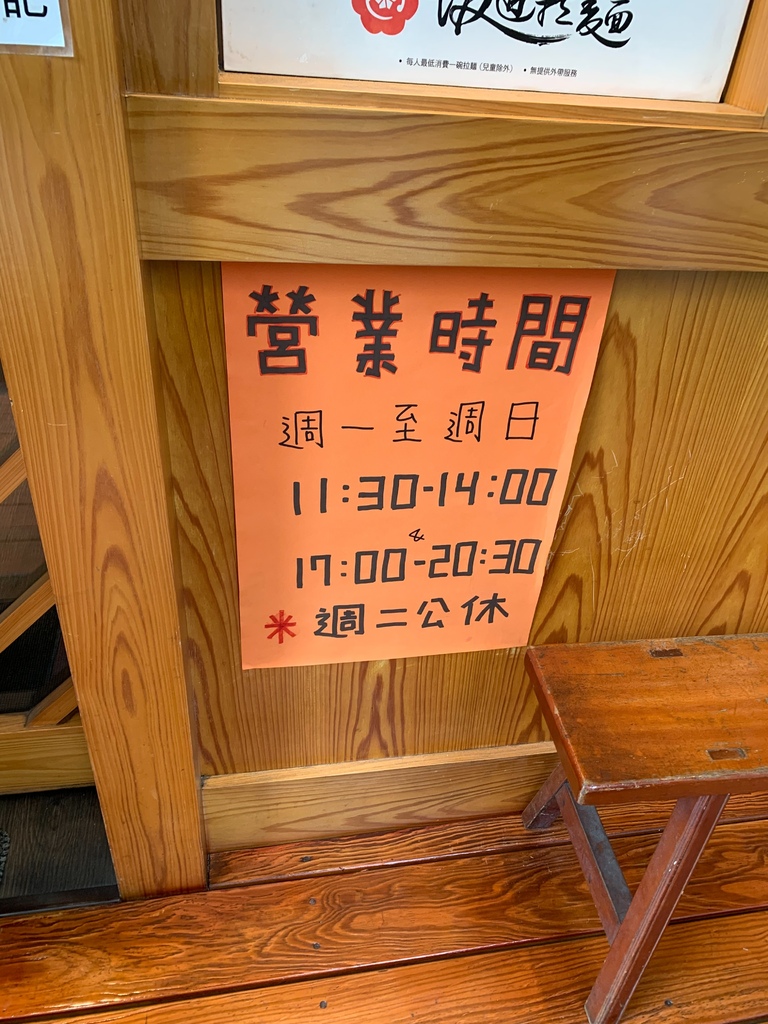 記
拉麵
• 每人最低消費一碗拉麵(兒童除外) • 無提供外帶服務
營業時間
週一至週日
11:30-14:00
&
17:00-20:30
＊週二公休